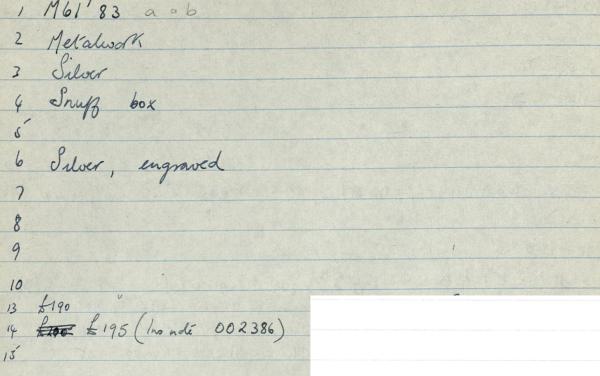 1 M61'83 a a b
2 Metalwork
3 Silver
4 Snuff box
5
6 Silver, engraved
7
8
9
10
13 £190
14 £195 (Ins note 002386)
15